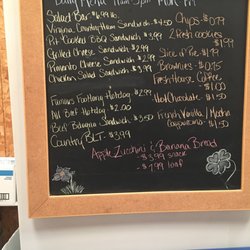 Daily Menu 11am-3pm Mon-Fri
Salad Bar $6.99 lb.
Virginia Country Ham Sandwich $4.50
Pit-Cooked BBQ Sandwich $3.99
Grilled Cheese Sandwich $2.99
Pimento Cheese Sandwich $2.99
Chicken Salad Sandwich $3.99
Famous Footlong Hotdog $2.99
All Beef Hotdog $2.00
Beef Bologna Sandwich $3.50
Country BLT $3.99
Chips $0.79
2 Fresh Cookies
$1.99
Slice o' Pie $1.99
Brownies $0.75
Fresh House Coffee
$1.00
Hot Chocolate $1.50
French Vanilla / Mocha
Cappuccino $1.50
Apple Zucchini & Banana Bread
$3.99 snack
$7.99 loaf